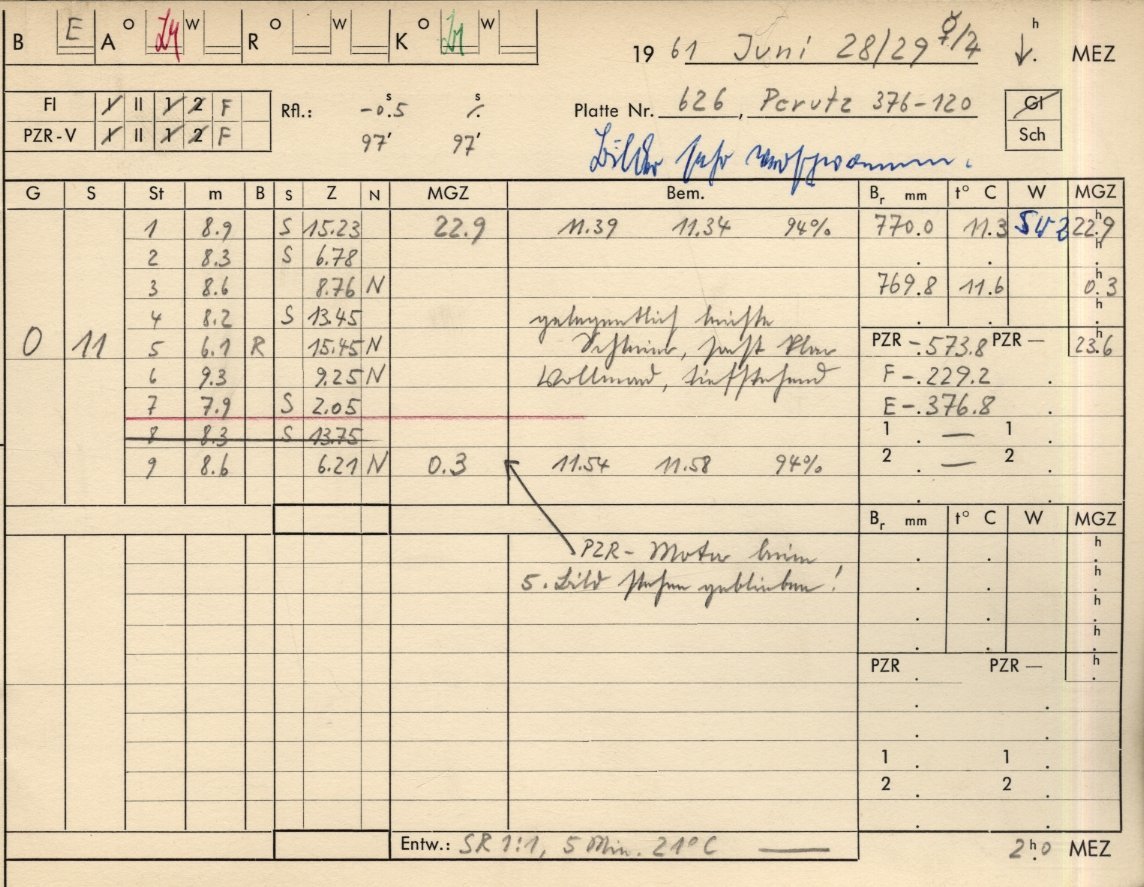 B E A O W R O W K O W
19 61 Juni 28/29 ☿/♃ h . MEZ
FI 1 II 1 2 F
PZR-V 1 II 1 2 F
Rfl.: -0ˢ.5
97' 97'
Platte Nr. 626, Perutz 376-120
Gl
Sch
Bilder sehr verschwommen.
G S St m B S Z N MGZ Bem. Bᵣ mm t° C W MGZ
1 8.9 S 15.23 22.9 11.39 11.34 94% 770.0 11.3 SW2 22ʰ.9
2 8.3 S 6.78
3 8.6 8.76 N 769.8 11.6 0ʰ.3
4 8.2 S 13.45 gelegentlich leichte
0 11 5 6.1 R 15.45 N Schleier, sonst klar PZR -.573.8 PZR — 23ʰ.6
6 9.3 9.25 N Vollmond, tiefstehend F -.229.2
7 7.9 S 2.05 E -.376.8
8 8.3 S 13.75 1 — 1
9 8.6 6.21 N 0.3 11.54 11.58 94% 2 — 2
Bᵣ mm t° C W MGZ
PZR-Motor beim
5. Bild stehen geblieben!
PZR PZR —
1 1
2 2
Entw.: SR 1:1, 5 Min. 21°C — 2ʰ.0 MEZ